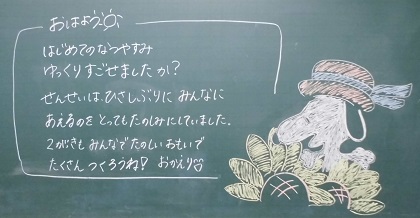 おはよう
はじめてのなつやすみ
ゆっくりすごせましたか？
せんせいは、ひさしぶりに みんなに
あえるのを とってもたのしみにしていました。
2がっきも みんなでたのしいおもいで
たくさん つくろうね！ おかえり